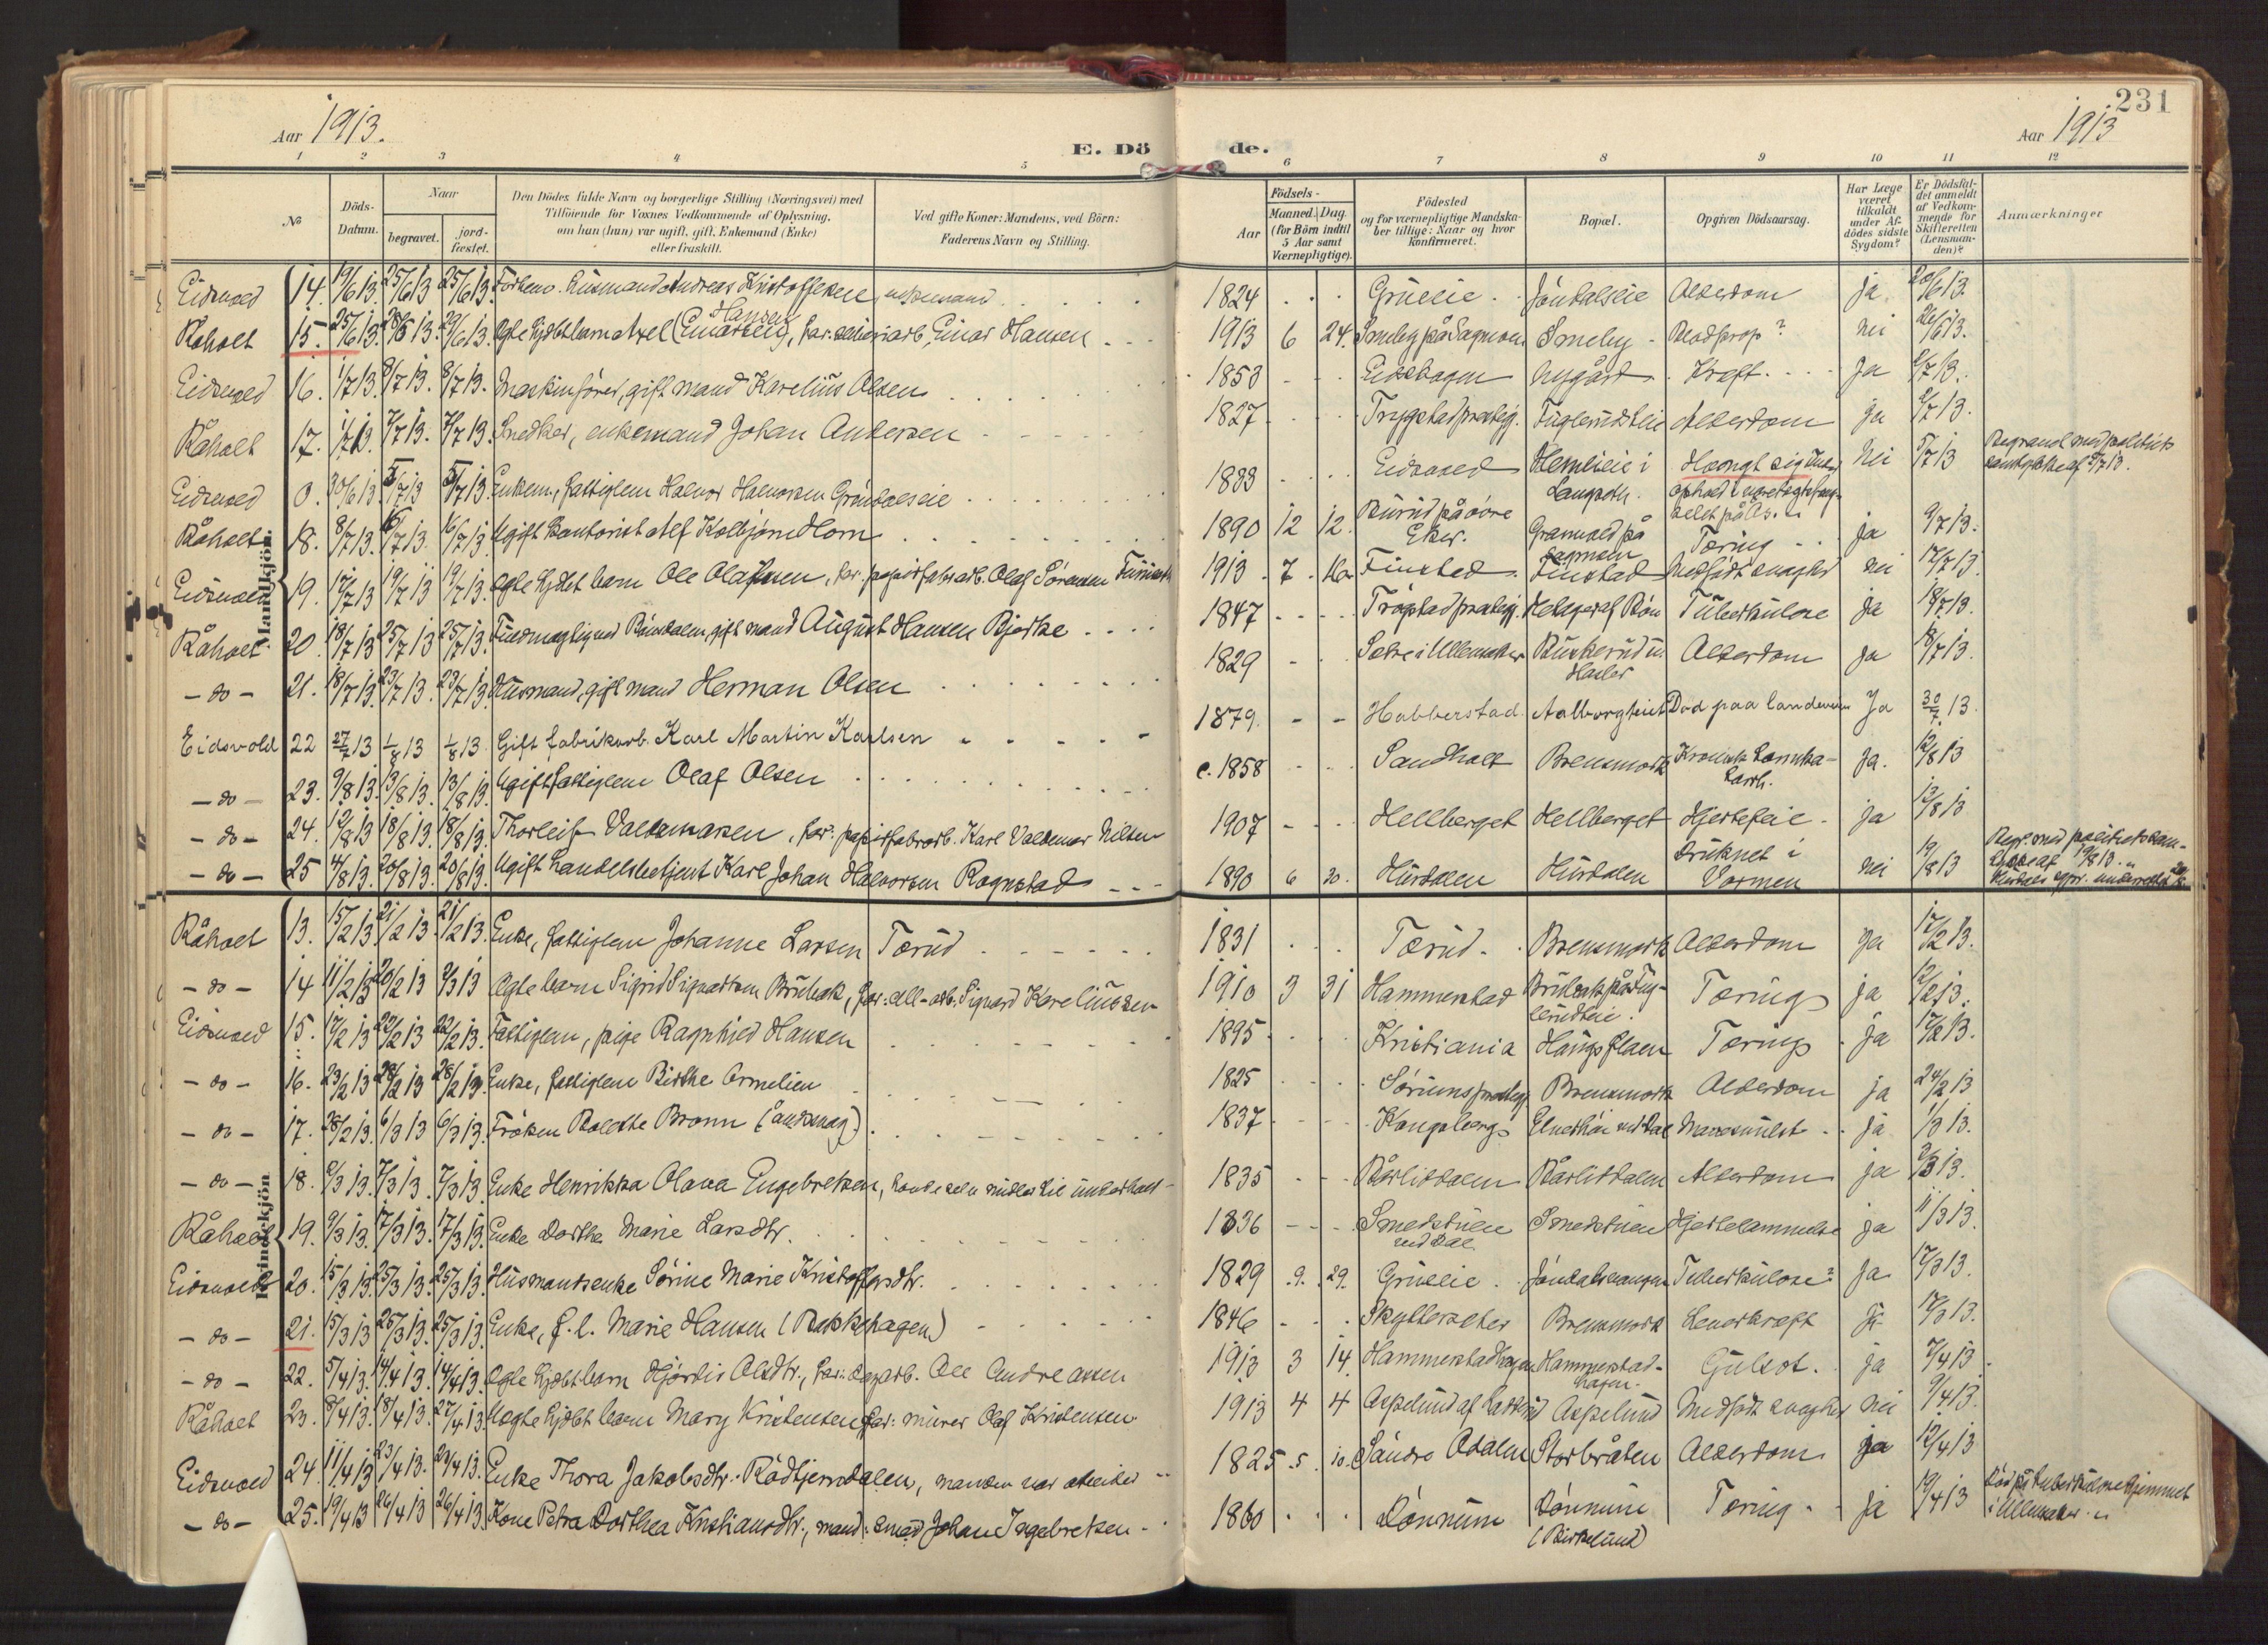 231
Aar 1913.
E. Dö
de.
Aar 1913
1 2 3 4 5 6 7 8 9 10 11 12
No
Döds-Datum.
Naar
begravet.
jord-fæstet.
Den Dödes fulde Navn og borgerlige Stilling (Næringsvei) med
Tilföiende for Voxnes Vedkommende af Oplysning,
om han (hun) var ugift, gift, Enkemand (Enke)
eller fraskilt.
Ved gifte Koner: Mandens, ved Börn:
Faderens Navn og Stilling.
Födsels-
Aar
Maaned. Dag.
(for Börn indtil
5 Aar samt
Værnepligtige).
Födested
og for værnepligtige Mandska-
ber tillige: Naar og hvor
konfirmeret.
Bopæl.
Opgiven Dödsaarsag.
Har Læge
været
tilkaldt
under Af-
dödes sidste
Sygdom?
Er Dödsfal-
det anmeldt
af Vedkom-
mende for
Skifteretten
(Lensman-
den)?
Anmærkninger
Mandkjön
Eidsvold 14. 19/6 13. 25/6 13 25/6 13. Husmand Andreas Kristoffersen, enkemand 1824 Grueeie Jöndalseie Alderdom ja 20/6 13.
Råholt 15. 25/6 13. 28/6 13 29/6 13. Ægte hjdbt barn Axel (Einarsen) Hansen, far: Einar Hansen 1913 6 24. Smeby på Dagmoen Smeby Blodprop? nei 26/6 13.
Eidsvold 16. 1/7 13. 8/7 13. 8/7 13. Maskinförer, gift mand Karelius Olsen 1853 Nygård Kræft ja 2/7 13.
Råholt 17. 1/7 13. 7/7 13. 7/7 13. Snedker, enkemand Johan Andersen 1827 Trygstad præstegj. Alderdom ja 2/7 13.
Eidsvold 0. 30/6 13 5/7 13 5/7 13. Enkem., fattiglem Halvor Halvorsen 1833 Eidsvold Hemlieie i Langseth. Hængt sig under ophold i på Ås. nei 5/7 13 Begravet med politiets samtykke af 5/7 13.
Råholt 18. 8/7 13. 16/7 13 16/7 13. Ugift kontorist Alf Kolbjörn Horn 1890 12 12. på övre Eker. Granvold på Dagmoen Tæring ja 9/7 13.
Eidsvold 19. 17/7 13 19/7 13 19/7 13. Ægte hjdbt barn Ole Olafsen, far: papirfabrarb. Olaf Sörensen Finstad 1913 7 Finstad Finstad Medfödt svaghed nei 17/7 13.
Råholt 20. 18/7 13 25/7 13 25/7 13. gift mand August Hansen Bjerke 1847 Tröpstad præstegj. Tuberkulose ja 18/7 13.
-do- 21. 18/7 13. 23/7 13. 23/7 13. Husmand, gift mand Herman Olsen 1829 i Ullensaker Buskerud Alderdom ja 18/7 13.
Eidsvold 22 27/7 13 1/8 13 1/8 13 Gift fabrikarb. Karl Martin Karlsen 1879. Habberstad Aalborgeiet Död paa landeveien ja 30/7 13.
-do- 23. 9/8 13. 13/8 13. 13/8 13. Ugift fattiglem Olaf Olsen c. 1858 Sandholt Brensmork Kronisk ja. 12/8 13
-do- 24. 12/8 13 18/8 13. 18/8 13. Thorleif Valdemarsen, far: papirfabrarb. Karl Valdemar Nilsen 1907 Hellberget Hellberget Hjertefeil ja 13/8 13
-do- 25 4/8 13. 20/8 13. 20/8 13. Ugift handelsbetjent Karl Johan Halvorsen Rognstad 1890 6 20. Hurdalen Hurdalen Druknet i Vormen nei 19/8 13 Begr. med politiets sam-
tykke af 19/8 13.
Kvindekjön
Råholt 13. 15/2 13. 21/2 13. 21/2 13. Enke, fattiglem Johanne Larsen Tærud 1831 Tærud Brensmork Alderdom ja 17/2 13.
-do- 14 11/2 13 20/2 13 2/3 13 Ægte barn Sigrid Sigvardsen Brubak, far: Sigvard Kareliussen 1910 3 31 Hammerstad Brubak på Tæring ja 12/2 13.
Eidsvold 15. 17/2 13 22/2 13 22/2 13. Fattiglem, pige Ragnhild Hansen 1895 Kristiania Haugsflaen Tæring ja 17/2 13.
-do- 16. 23/2 13 28/2 13 28/2 13. Enke, fattiglem Birthe Ormelien 1825 Sörums præstegj. Brensmork Alderdom ja 24/2 13
-do- 17. 28/2 13. 6/3 13 6/3 13. Fröken Bolette Bronn (åndssvag) 1837 Kongsberg ved Dal Mavesvulst ja 1/3 13.
-do- 18. 2/3 13. 7/3 13. 7/3 13. Enke Henrikka Olava Engebretsen, havde selv midler til underhold 1835 Bårlidalen Bårlidalen Alderdom ja 3/3 13.
Råholt 19. 9/3 13. 17/3 13. 17/3 13. Enke Dorthe Marie Larsdtr. 1836 Smedstuen ved Dal Smedstuen Hjertelammelse ja 11/3 13.
Eidsvold 20. 15/3 13. 25/3 13. 25/3 13. Husmandsenke Sörine Marie Kristoffersdtr. 1829 9. 29. Grueeie Tuberkulose? ja 17/3 13.
-do- 21. 15/3 13 25/3 13. 25/3 13. Enke, f.l. Marie Hansen (Bakkehagen) 1846 Brensmork Leverkræft ja 17/3 13.
-do- 22. 5/4 13. 14/4 13. 14/4 13. Ægte hjdbt barn Hjördis Olsdtr., far: dagarb. Ole Andreassen 1913 3 14. Hammerstadhagen Hammerstad-
hagen. Gulsot ja 7/4 13.
Råholt 23. 8/4 13. 18/4 13. 27/4 13. Uægte hjdbt barn Mary Kristensen, far: murer Olaf Kristensen 1913 4 4 Aspelund af Aspelund Medfödt svaghed nei 9/4 13.
Eidsvold 24. 11/4 13 23/4 13. 23/4 13. Enke Thora Jakobsdtr. Rådtjerndalen, manden var arbeider 1825 5. 10. Söndre Odalen Storbråten Alderdom ja 12/4 13
-do- 25. 19/4 13 26/4 13 26/4 13. Kone Petra Dorthea Kristiansdtr., mand: smed Johan Ingebretsen 1860 Dönnum Dönnum (Birkelund) Tæring ja 19/4 13 Död på tuberkulosehjemmet
i Ullensaker.